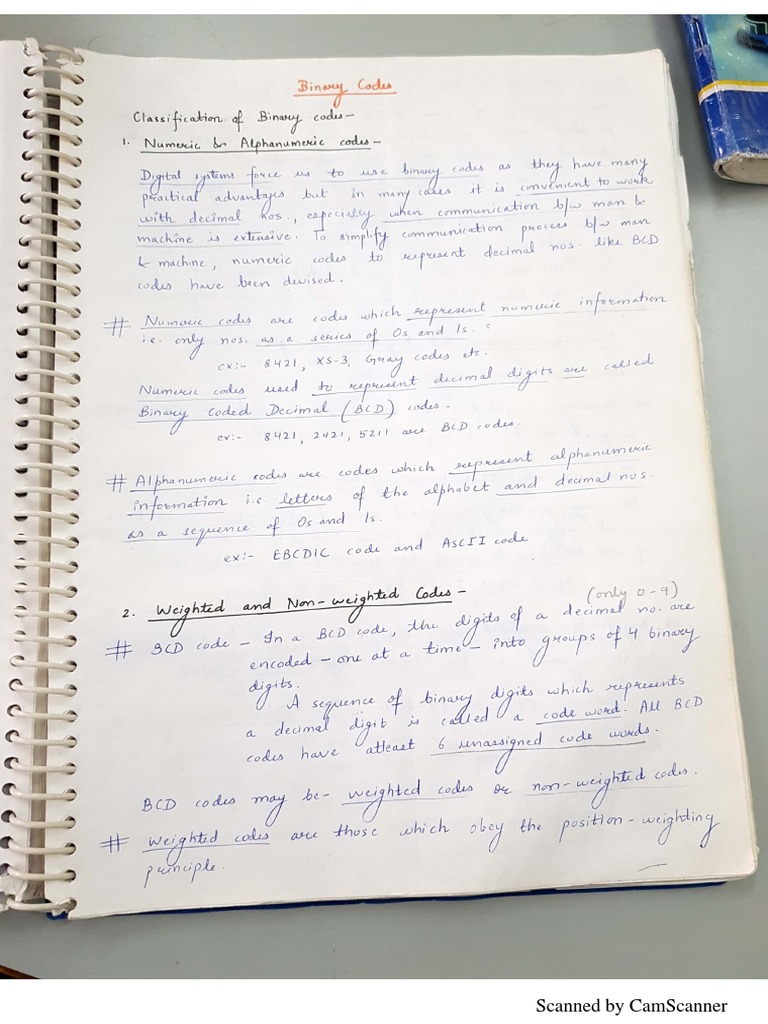 Binary Codes
Classification of Binary codes-
1. Numeric & Alphanumeric codes-
Digital systems force us to use binary codes as they have many
practical advantages but in many cases it is convenient to work
with decimal nos., especially when communication b/w man &
machine is extensive. To simplify communication process b/w man
& machine, numeric codes to represent decimal nos. like BCD
codes have been devised.
# Numeric codes are codes which represent numeric information
i.e. only nos. as a series of 0s and 1s.
ex:- 8421, XS-3, Gray codes etc.
Numeric codes used to represent decimal digits are called
Binary Coded Decimal (BCD) codes-
ex:- 8421, 2421, 5211 are BCD codes.
# Alphanumeric codes are codes which represent alphanumeric
information i.e. letters of the alphabet and decimal nos.
as a sequence of 0s and 1s.
ex:- EBCDIC code and ASCII code
2. Weighted and Non-weighted Codes-
(only 0-9)
# BCD code - In a BCD code, the digits of a decimal no. are
encoded - one at a time - into groups of 4 binary
digits.
A sequence of binary digits which represents
a decimal digit is called a code word. All BCD
codes have atleast 6 unassigned code words.
BCD codes may be- weighted codes or non-weighted codes.
# Weighted codes are those which obey the position-weighting
principle.
Scanned by CamScanner